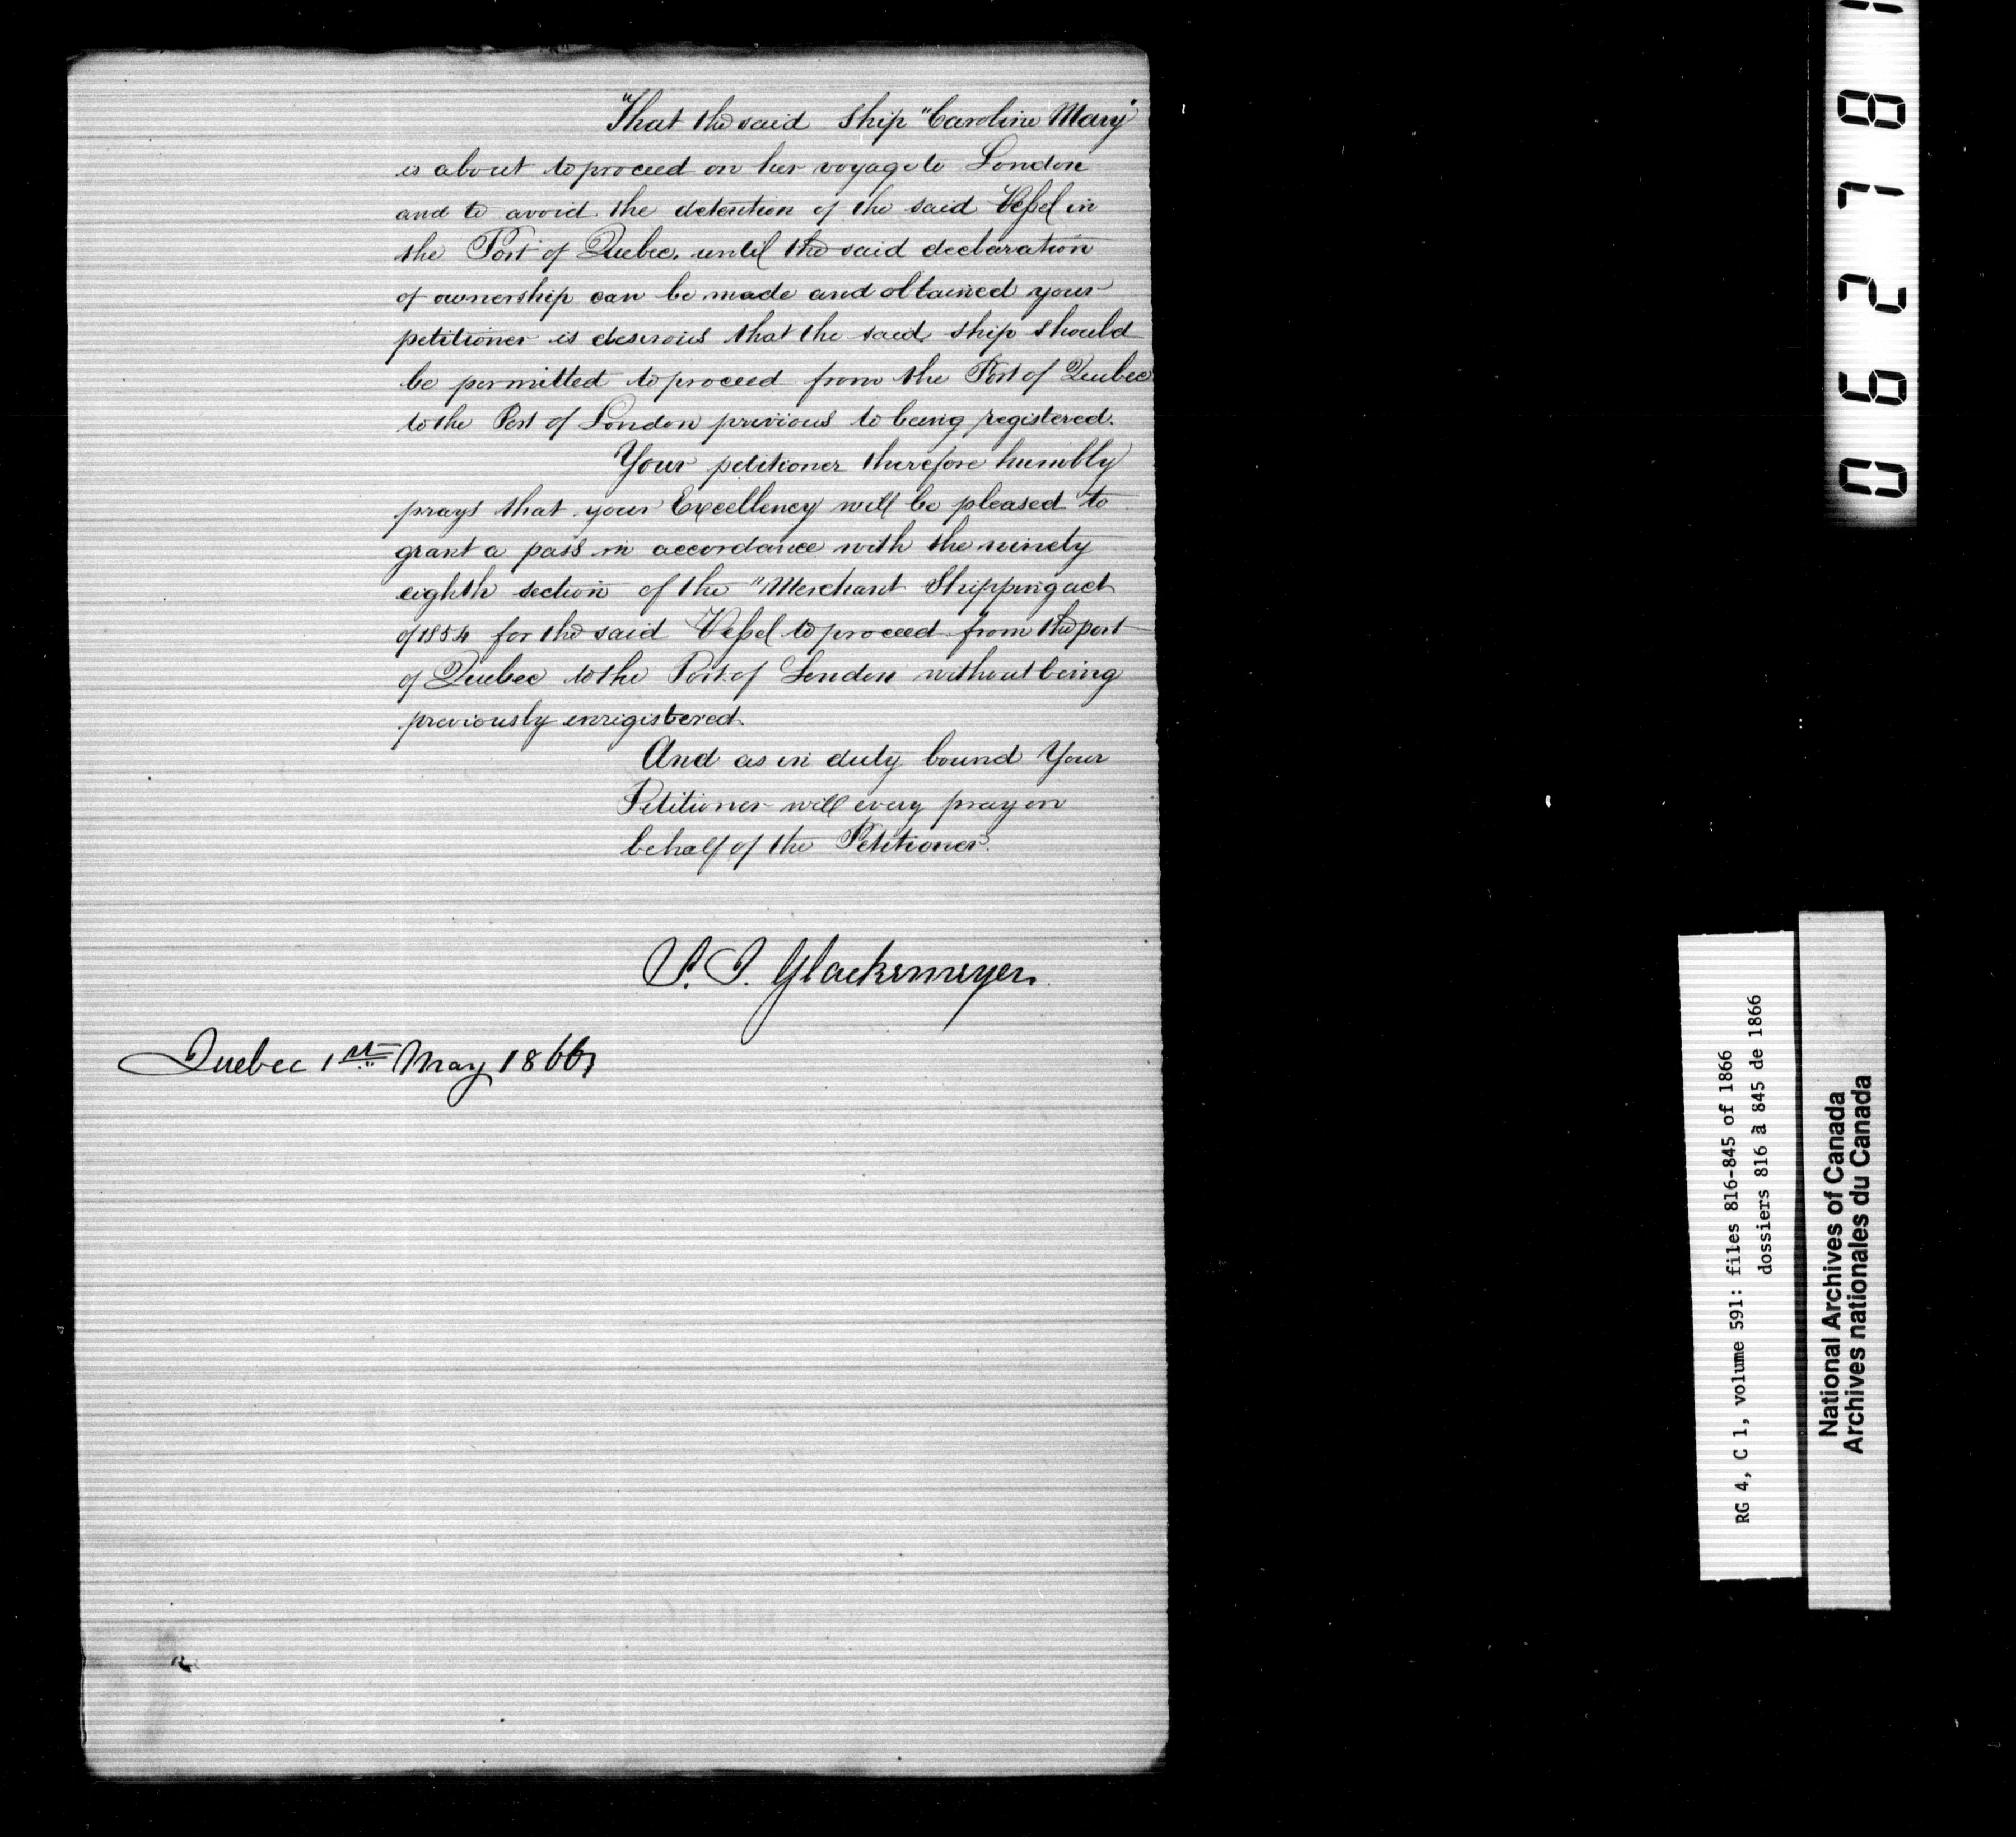 "That the said Ship "Caroline Mary"
is about to proceed on her voyage to London
and to avoid the detention of the said Vessel in
the Port of Quebec, until the said declaration
of ownership can be made and obtained your
petitioner is desirous that the said ship should
be permitted to proceed from the Port of Quebec
to the Port of London previous to being registered.
Your petitioner therefore humbly
prays that your Excellency will be pleased to
grant a pass in accordance with the ninety
eighth section of the "Merchant Shipping act
of 1854 for the said Vessel to proceed from the port
of Quebec to the Port of London without being
previously enrigistered.
And as in duty bound Your
Petitioner will every pray on
behalf of the Petitioner.
Glackemeyer.
Quebec 1st May 1866
062781
RG 4, C 1, volume 591: files 816-845 of 1866
dossiers 816 à 845 de 1866
National Archives of Canada
Archives nationales du Canada